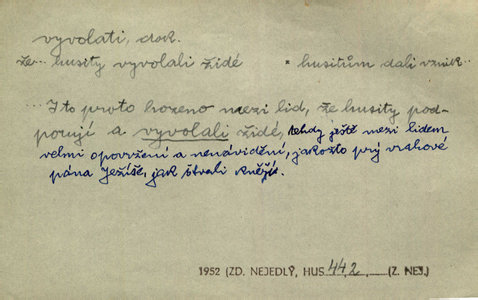 vyvolati, dok.
že... husity vyvolali židé × husitům dali vznik..
...I to proto hozeno mezi lid, že husity pod-
porují a vyvolali židé, tehdy ještě mezi lidem
velmi opovržení a nenávidění, jakožto prý vrahové
pána Ježíše, jak štvali kněží.
1952 (ZD. NEJEDLÝ, HUS. 44,2, (Z. NEJ.)